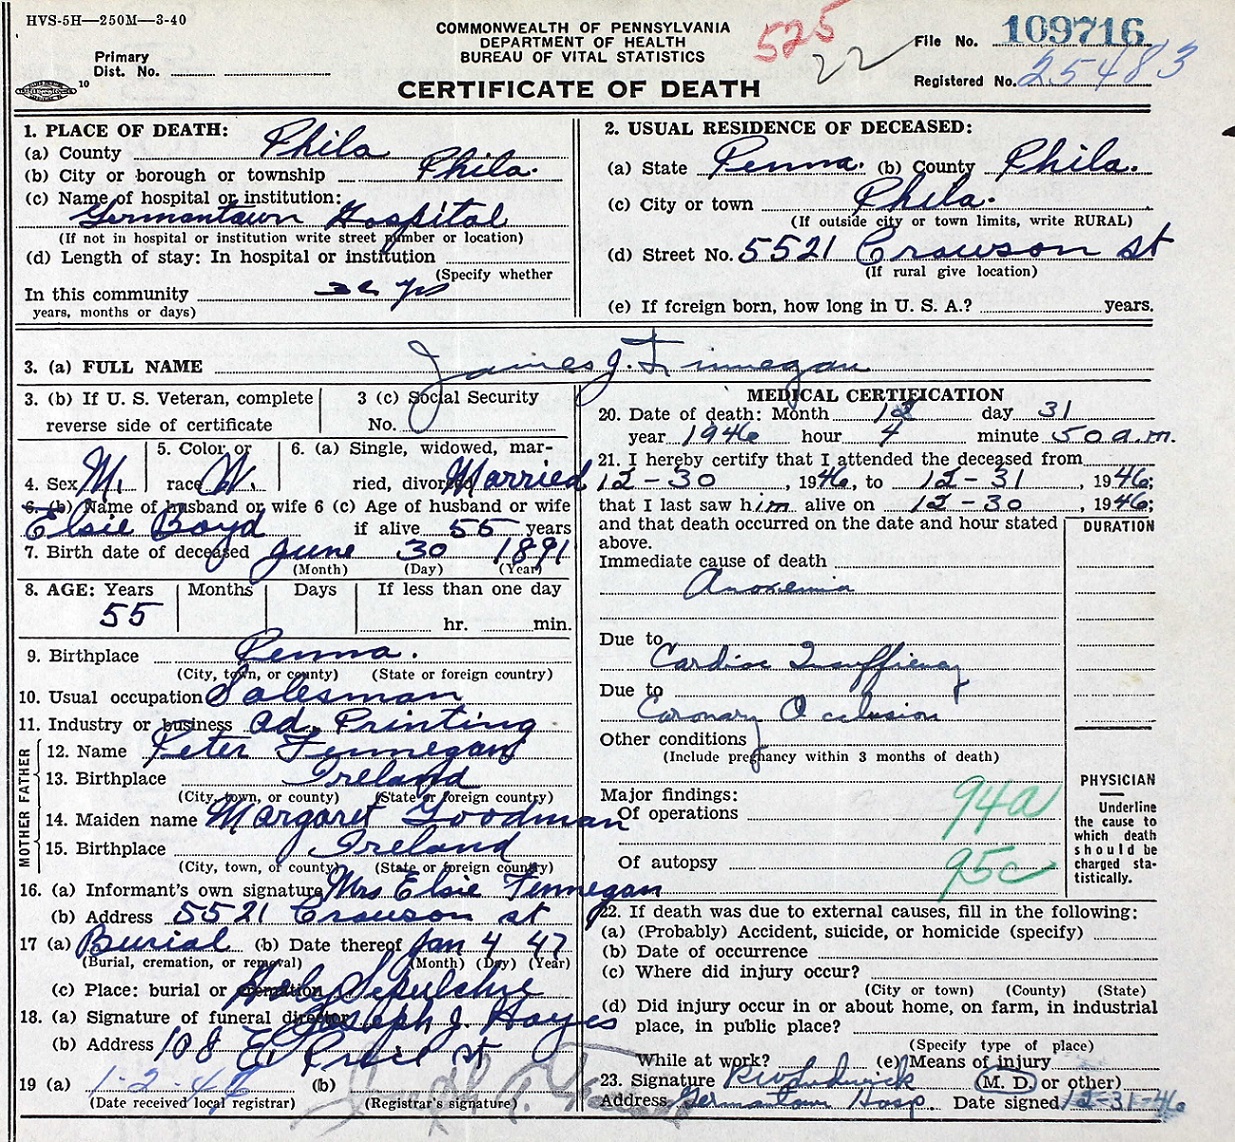 HVS-5H—250M—3-40
COMMONWEALTH OF PENNSYLVANIA
DEPARTMENT OF HEALTH
BUREAU OF VITAL STATISTICS
525
22
File No. 109716
Primary
Dist. No.
Registered No. 25483
10
CERTIFICATE OF DEATH
1. PLACE OF DEATH:
(a) County Phila
(b) City or borough or township Phila.
(c) Name of hospital or institution:
Germantown Hospital
(If not in hospital or institution write street number or location)
(d) Length of stay: In hospital or institution
(Specify whether
In this community yrs
years, months or days)
2. USUAL RESIDENCE OF DECEASED:
(a) State Penna. (b) County Phila.
(c) City or town Phila.
(If outside city or town limits, write RURAL)
(d) Street No. 5521 Crowson st
(If rural give location)
(e) If foreign born, how long in U. S. A.? years.
3. (a) FULL NAME James J. Finnegan
3. (b) If U. S. Veteran, complete
reverse side of certificate
3 (c) Social Security
No.
4. Sex M.
5. Color or
race W.
6. (a) Single, widowed, mar-
ried, divorced Married
6. (b) Name of husband or wife 6 (c) Age of husband or wife
Elsie Boyd if alive 55 years
7. Birth date of deceased June 30 1891
(Month) (Day) (Year)
8. AGE: Years Months Days If less than one day
55 hr. min.
9. Birthplace Penna.
(City, town, or county) (State or foreign country)
10. Usual occupation Salesman
11. Industry or business Ad. Printing
FATHER
12. Name Peter Finnegan
13. Birthplace Ireland
(City, town, or county) (State or foreign country)
MOTHER
14. Maiden name Margaret Goodman
15. Birthplace Ireland
(City, town, or county) (State or foreign country)
16. (a) Informant's own signature Mrs Elsie Finnegan
(b) Address 5521 Crowson st
17 (a) Burial (b) Date thereof Jan 4 47
(Burial, cremation, or removal) (Month) (Day) (Year)
(c) Place: burial or cremation Holy Sepulchre
18. (a) Signature of funeral director Joseph J. Hayes
(b) Address 108 E. Price st
19 (a) 1-2-47 (b)
(Date received local registrar) (Registrar's signature)
MEDICAL CERTIFICATION
20. Date of death: Month 12 day 31
year 1946 hour 4 minute 50 a.m.
21. I hereby certify that I attended the deceased from
12-30, 1946, to 12-31, 1946;
that I last saw him alive on 12-30, 1946;
and that death occurred on the date and hour stated
above.
DURATION
Immediate cause of death
Anoxemia
Due to
Cardiac Insufficiency
Due to
Coronary Occlusion
Other conditions
(Include pregnancy within 3 months of death)
Major findings:
Of operations 94a
Of autopsy 95c
PHYSICIAN
Underline
the cause to
which death
should be
charged sta-
tistically.
22. If death was due to external causes, fill in the following:
(a) (Probably) Accident, suicide, or homicide (specify)
(b) Date of occurrence
(c) Where did injury occur?
(City or town) (County) (State)
(d) Did injury occur in or about home, on farm, in industrial
place, in public place?
(Specify type of place)
While at work? (e) Means of injury
23. Signature (M. D. or other)
Address Germantown Hosp. Date signed 12-31-46